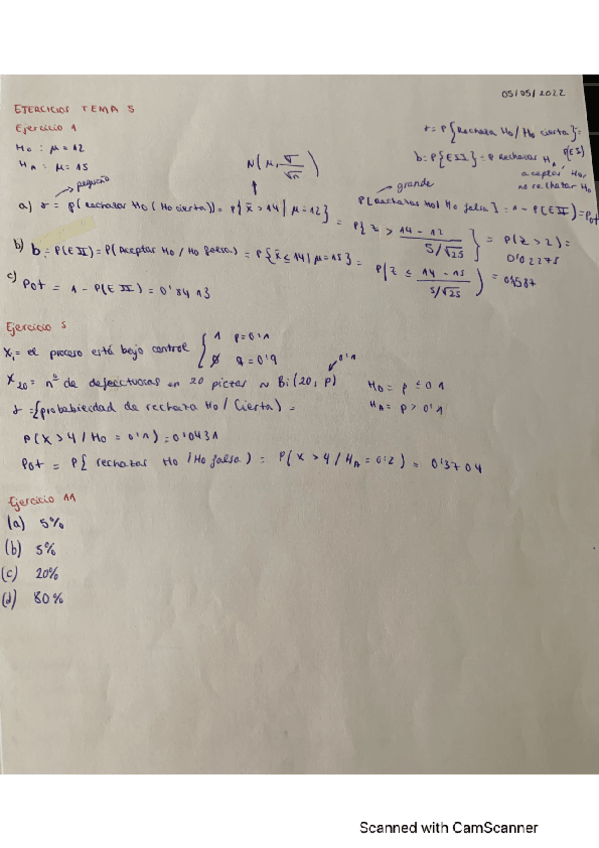 05/05/2022
EJERCICIOS TEMA 5
Ejercicio 1
H0 : μ = 12
HA : μ = 15
N(μ, σ/√n)
α = P{Rechaza H0 / H0 cierta} = P(EI)
b = P{EII} = P rechazar HA
aceptar H0,
no rechazar H0
pequeño
a) α = P(rechazar H0 (H0 cierta)) = P{x̄ > 14 | μ = 12} = P{Z > 14 - 12 / 5/√25} = P(Z > 2) = 0'02275
grande
P{Rechazar H0 / H0 falsa} = 1 - P(EII) = Pot
b) b = P(EII) = P(Aceptar H0 / H0 falsa) = P{x̄ ≤ 14 | μ = 15} = P(Z ≤ 14 - 15 / 5/√25) = 0'1587
c) Pot = 1 - P(EII) = 0'8413
Ejercicio 5
Xi = el proceso está bajo control { 1 p=0'1
0 q=0'9
0'1
X20 = nº de defectuosas en 20 piezas ~ Bi(20, p)
H0 = p ≤ 0'1
HA = p > 0'1
α = {probabilidad de rechaza H0 / Cierta} =
P(X > 4 / H0 = 0'1) = 0'0431
Pot = P{ rechazar H0 / H0 falsa) = P(X > 4 / HA = 0'2) = 0'3704
Ejercicio 11
(a) 5%
(b) 5%
(c) 20%
(d) 80%
Scanned with CamScanner